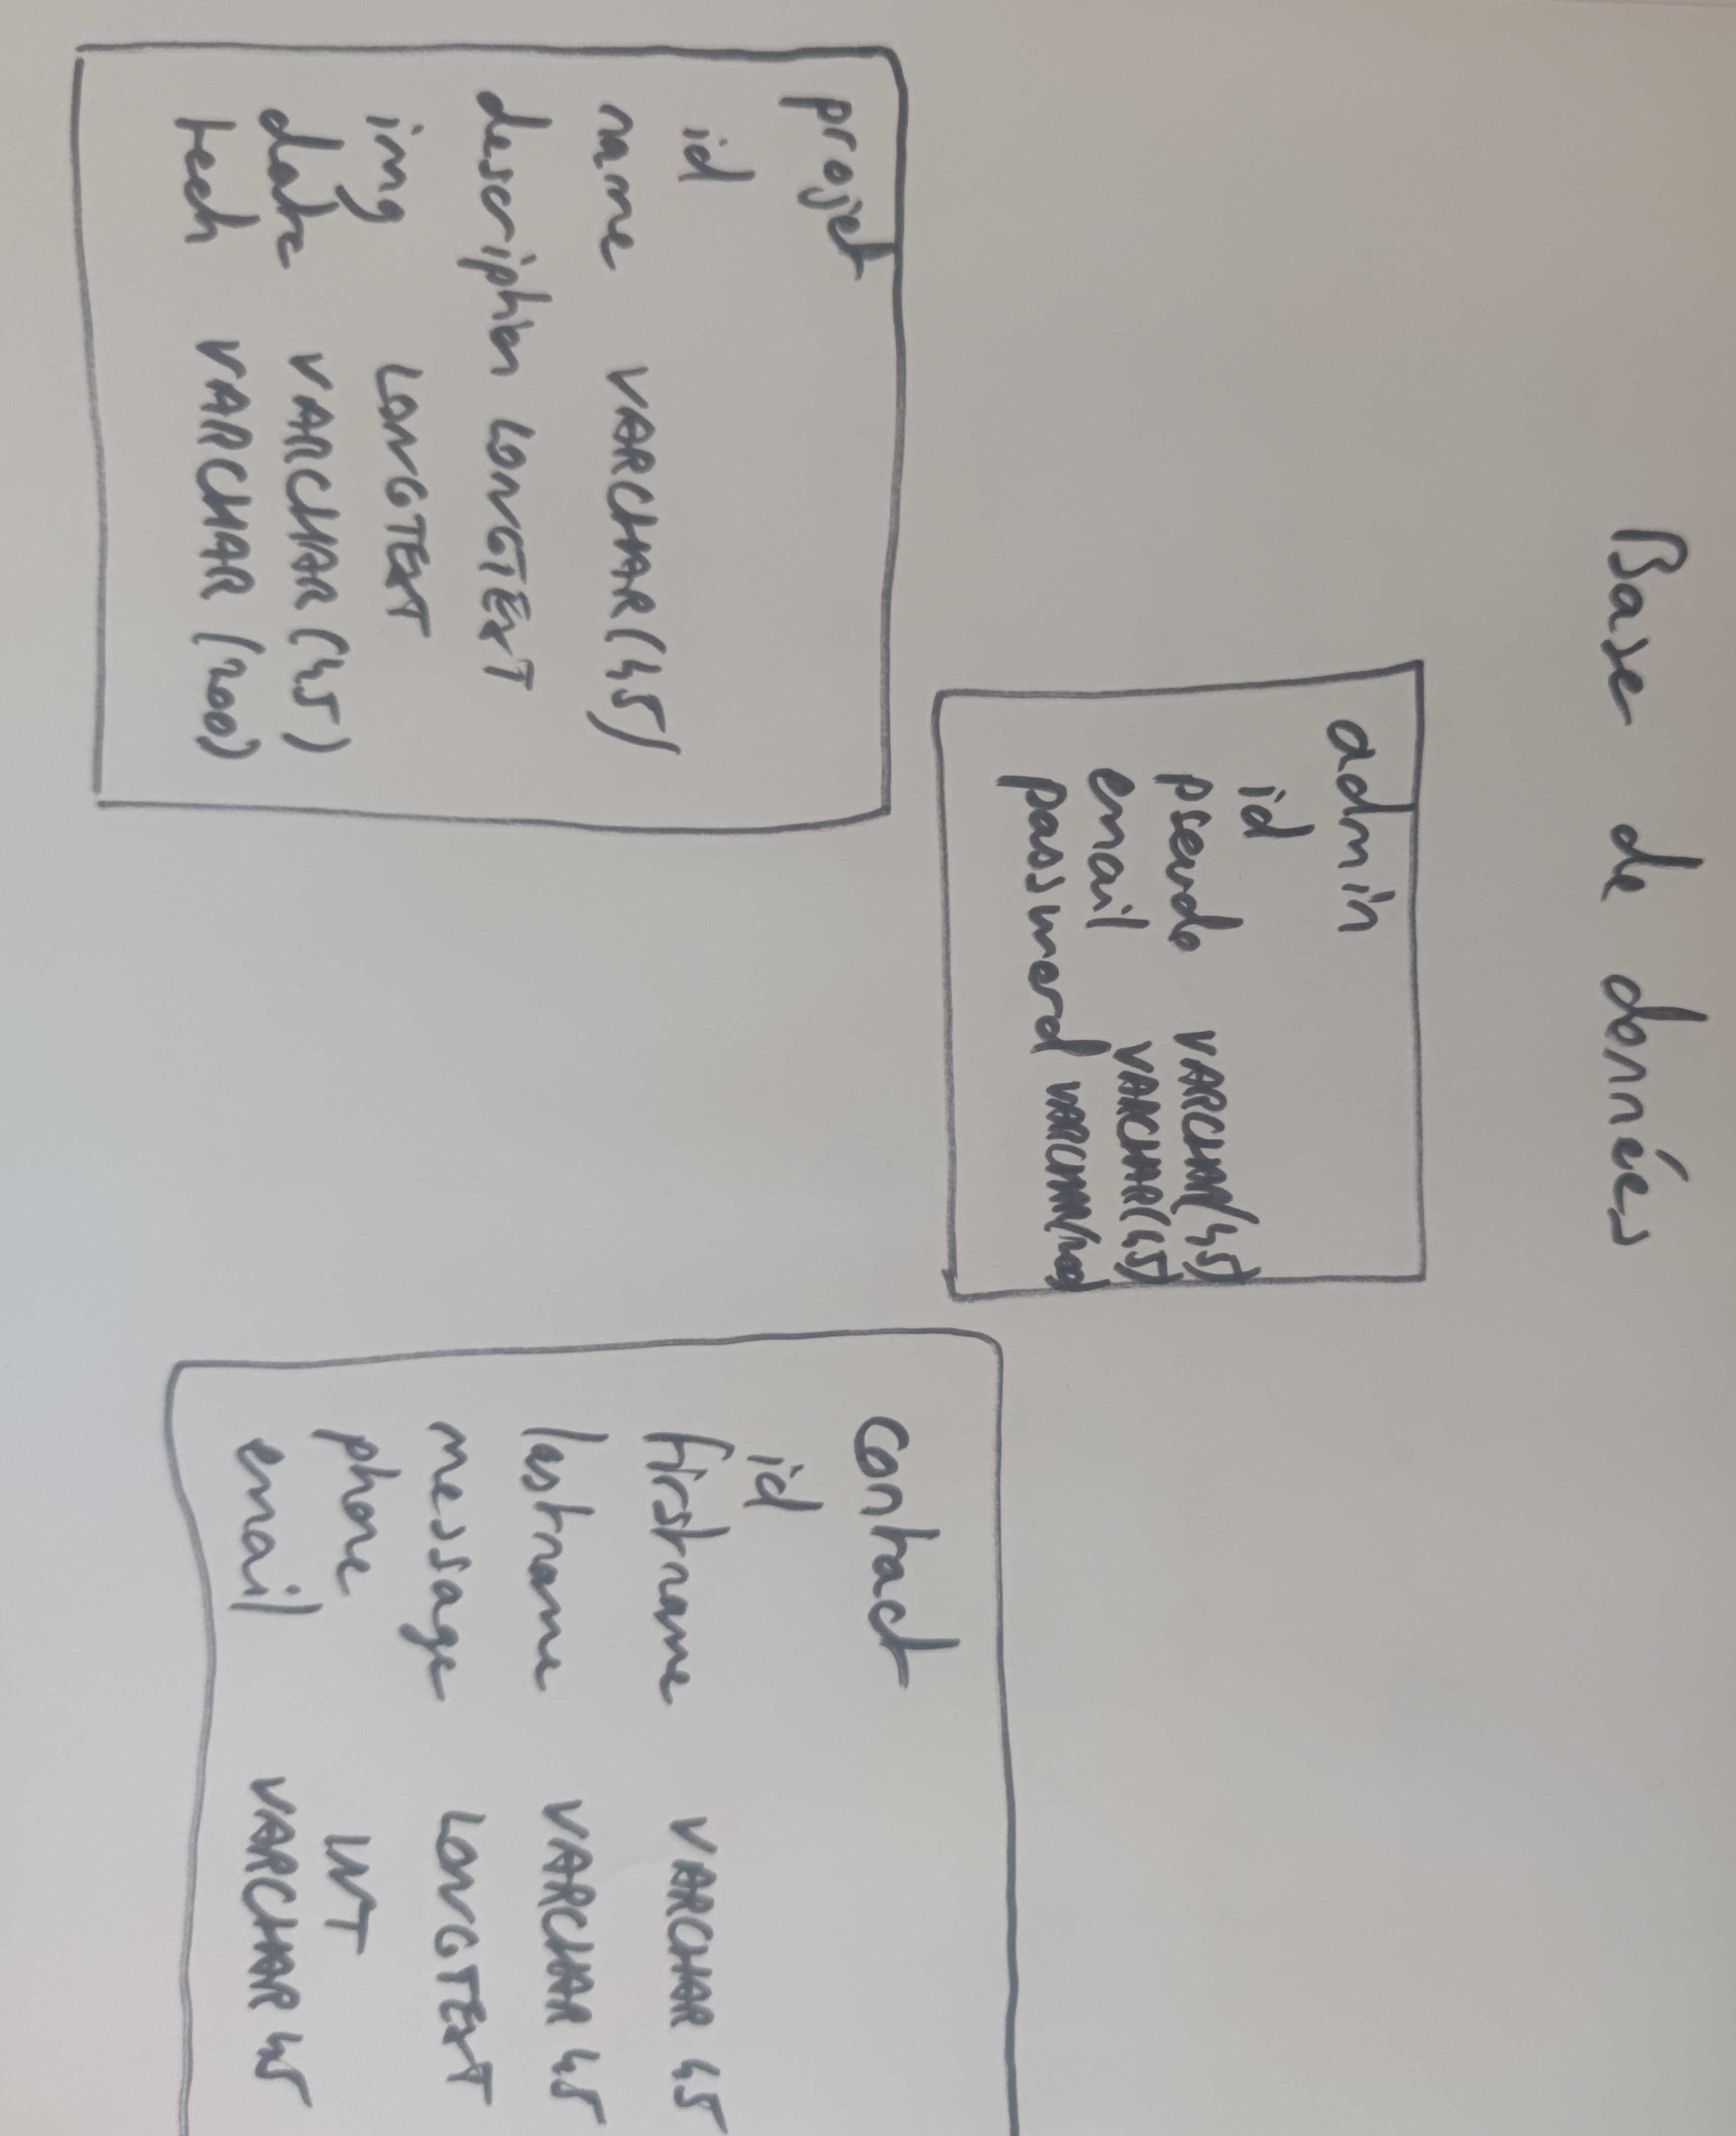 Base de données
admin
id
pseudo VARCHAR(45)
email VARCHAR(45)
password VARCHAR(200)
projet
id
name VARCHAR(45)
description LONGTEXT
img LONGTEXT
date VARCHAR(45)
tech VARCHAR(200)
contact
id
firstname VARCHAR 45
lastname VARCHAR 45
message LONGTEXT
phone INT
email VARCHAR 45